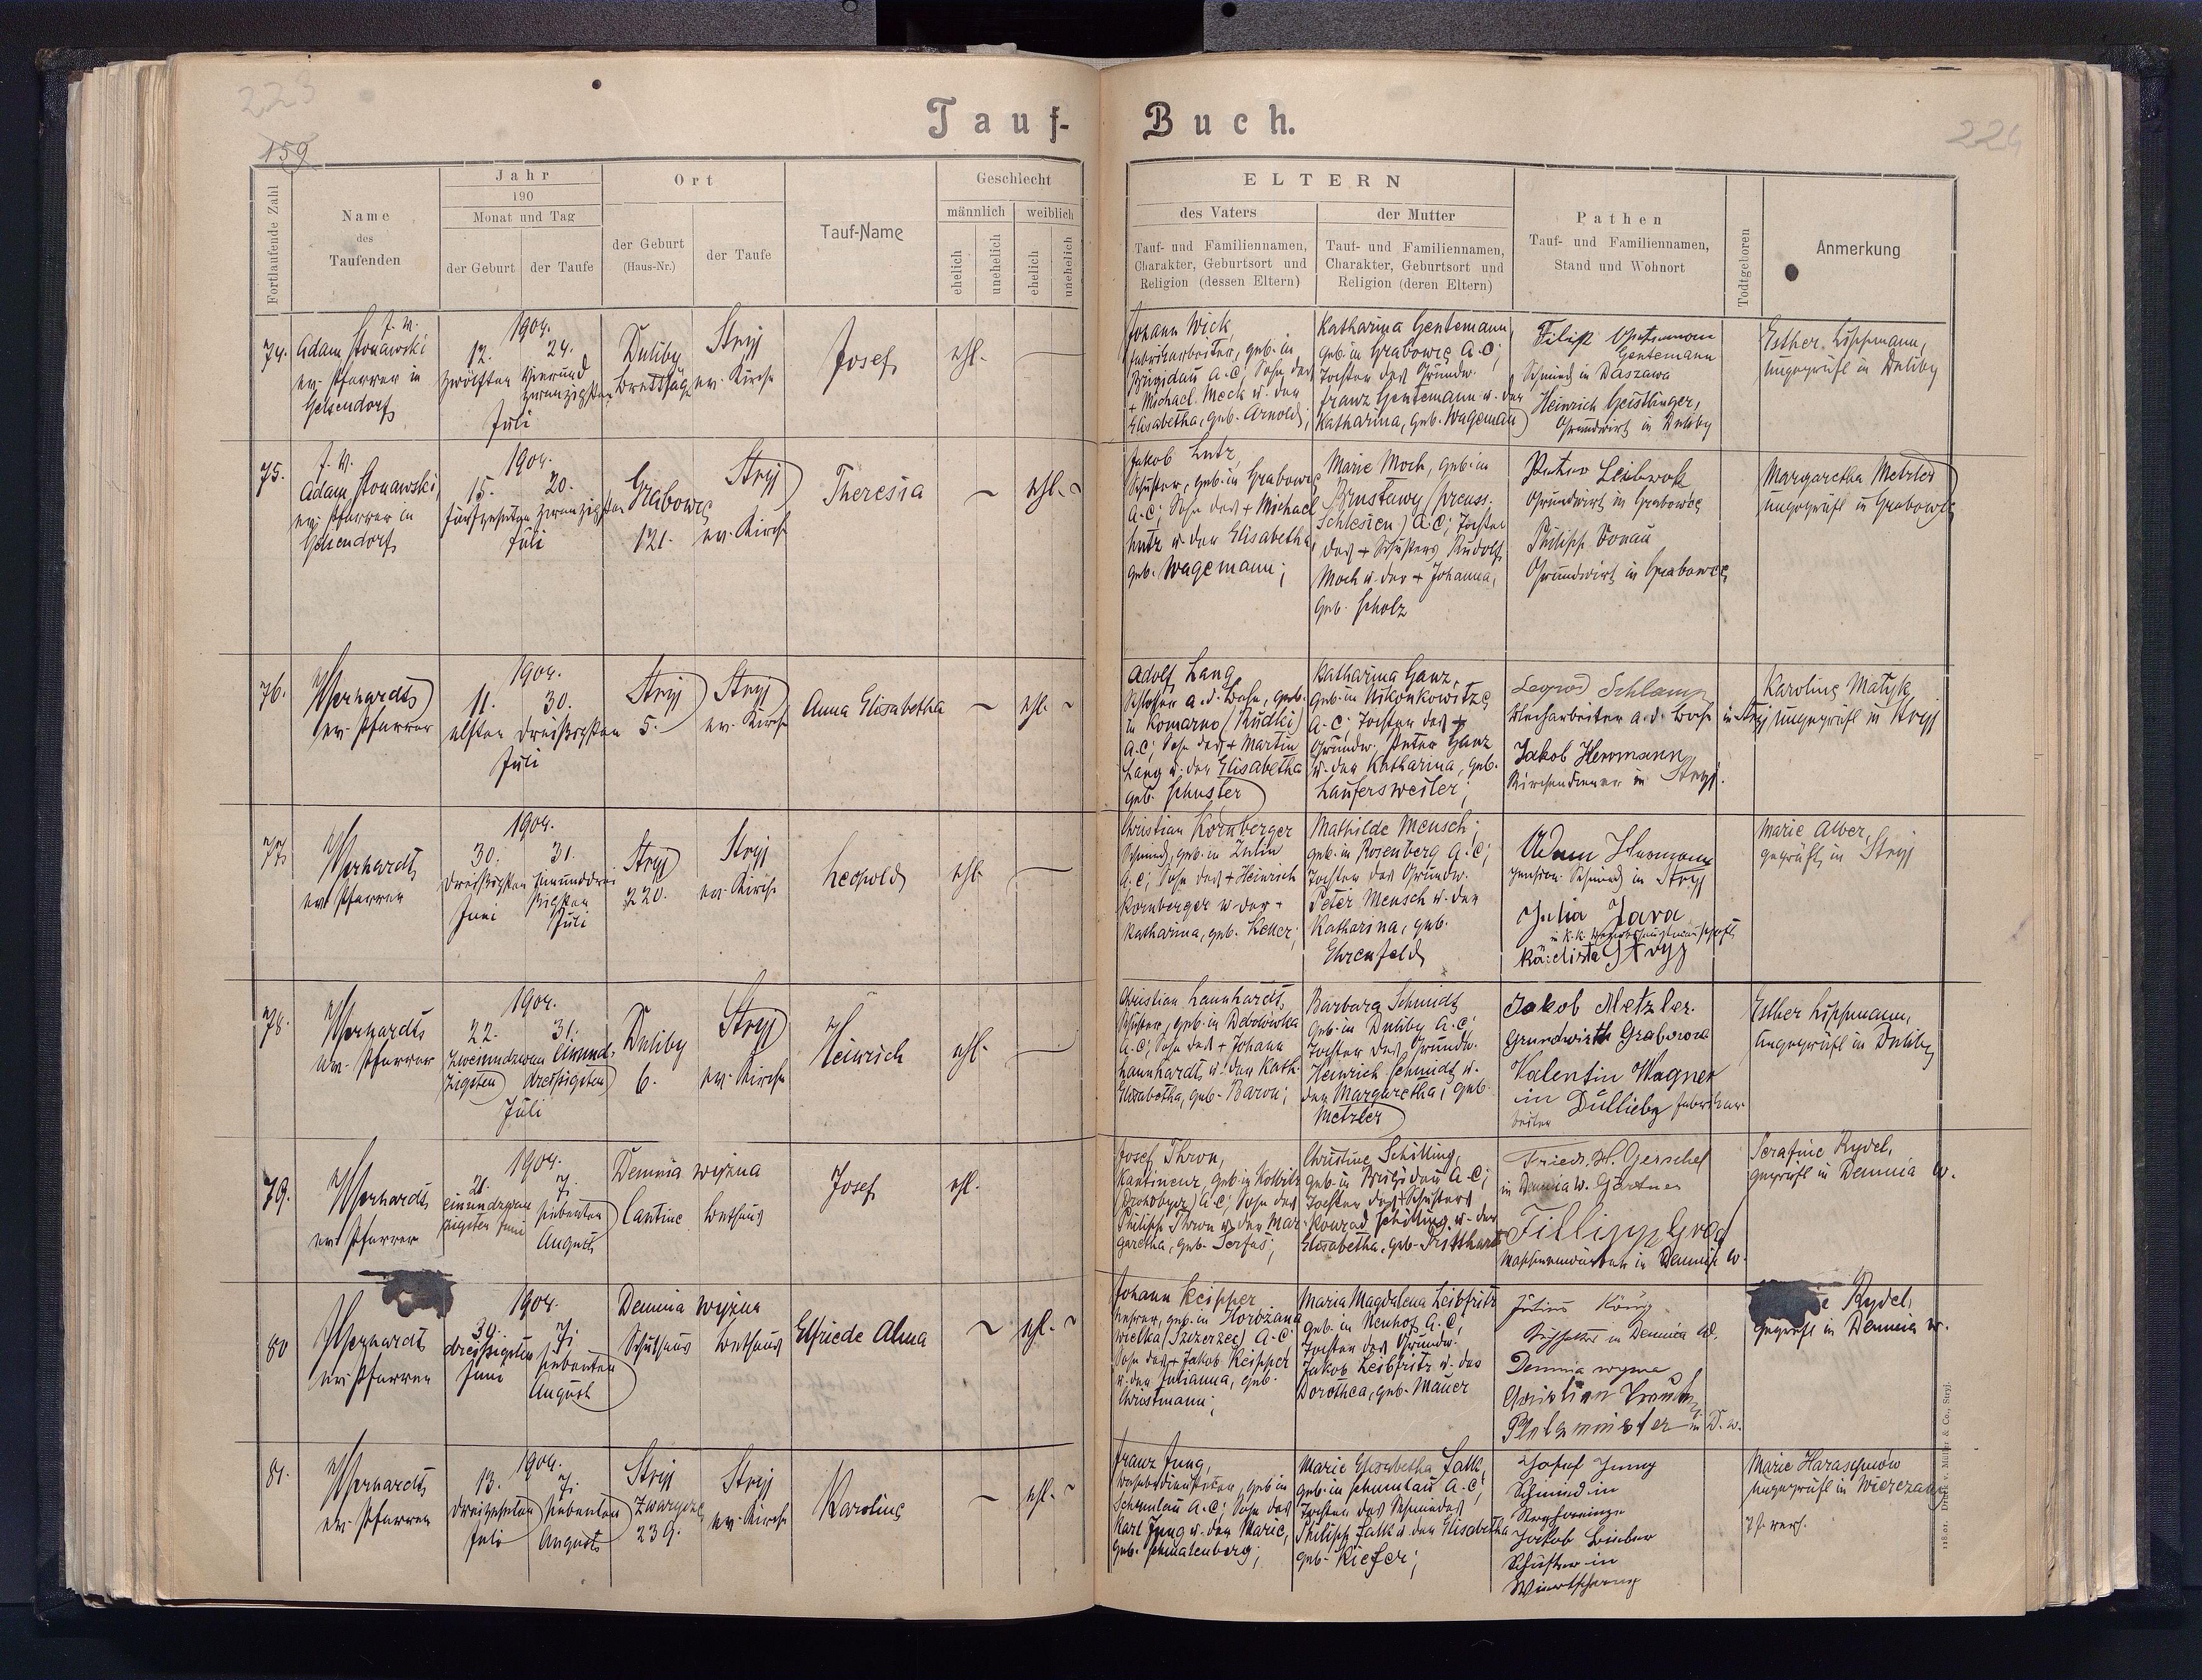 223
159
224
Tauf-Buch.
Fortlaufende Zahl
Name
des
Taufenden
Jahr
190
Monat und Tag
der Geburt
der Taufe
Ort
der Geburt
(Haus-Nr.)
der Taufe
Tauf-Name
Geschlecht
männlich
weiblich
ehelich
unehelich
ehelich
unehelich
ELTERN
des Vaters
Tauf- und Familiennamen,
Charakter, Geburtsort und
Religion (dessen Eltern)
der Mutter
Tauf- und Familiennamen,
Charakter, Geburtsort und
Religion (deren Eltern)
Pathen
Tauf- und Familiennamen,
Stand und Wohnort
Todtgeboren
Anmerkung
74.
Adam Stonawski
ev. Pfarrer in
Gelsendorf
1904.
12. 24.
zwölften vierund
zwanzigsten
Juli
Duliby
Brettsäge
Stryj
ev. Kirche
Josef
ehl.
Johann Wick,
Fabriksarbeiter, geb. in
Brigidau A.C; Sohn des
+ Michael Weck u. der
Elisabetha, geb. Arnold;
Katharina Gentemann,
geb. in Grabowce A.C;
Tochter des Grundw.
Franz Gentemann u. der
Katharina, geb. Wageman
Filip
Gentemann
Schmied in Daszawa
Heinrich Geistlinger,
Grundwirt in Duliby
Esther Lippmann,
ungeprüft in Duliby
75.
Adam Stonawski,
ev. Pfarrer in
Gelsendorf
1904.
15. 20.
fünfzehnten zwanzigsten
Juli
Grabowce
121.
Stryj
ev. Kirche
Theresia
ehl.
Jakob Lutz,
Schuster, geb. in Grabowce
A.C; Sohn des + Michael
Lutz u. der Elisabetha,
geb. Wagemann;
Marie Moch, geb. in
(preuss.
Schlesien) A.C; Tochter
des + Schusters Rudolf
Moch u. der + Johanna,
geb. Scholz
Peter Leibrock
Grundwirt in Grabowce
Philipp Donau
Grundwirt in Grabowce
Margaretha Metzler
ungeprüft in Grabowce
76.
ev. Pfarrer
1904.
11. 30.
elften dreißigsten
Juli
Stryj
5.
Stryj
ev. Kirche
Anna Elisabetha
ehl.
Adolf Lang
Schlosser a.d. Bahn, geb.
in Komarno (Rudki)
A.C; Sohn des + Martin
Lang u. der Elisabetha
geb. Schuster
Katharina Ganz,
geb. in Nikonkowitze
A.C; Tochter des +
Grundw. Peter Ganz
u. der Katharina, geb.
Laufersweiler;
Leopold Schlamp
a.d. Bahn in Stryj
Jakob Herrmann
Kirchendiener in Stryj.
Karoline Matyk
ungeprüft in Stryj
77.
ev. Pfarrer
1904.
30. 31.
dreißigsten einunddrei
ßigsten
Juni Juli
Stryj
220.
Stryj
ev. Kirche
Leopold
ehl.
Christian Kornberger
Schmied, geb. in Zulin
A.C; Sohn des + Heinrich
Kornberger u. der +
Katharina, geb. Keller;
Mathilde Mensch;
geb. in Rosenberg A.C;
Tochter des Grundw.
Peter Mensch u. der
Katharina, geb.
Ehrenfeld
Adam Hermann
pension. Schmied in Stryj
Julia Jara
Stryj
Marie Alber,
geprüft, in Stryj
78.
ev. Pfarrer
1904.
22. 31.
zweiundzwan einund
zigsten dreißigsten
Juli
Duliby
6.
Stryj
ev. Kirche
Heinrich
ehl.
Christian Lannhardt,
Schuster, geb. in Debolowka
A.C; Sohn des + Johann
Lannhardt u. der Kath.
Elisabetha, geb. Baron;
Barbara Schmidt
geb. in Duliby A.C;
Tochter des Grundw.
Heinrich Schmidt u.
der Margaretha, geb.
Metzler
Jakob Metzler.
Grundwirth Grabowce
Valentin Wagner
in Dullieby Fabrikar-
beiter
Esther Lippmann,
ungeprüft in Duliby
79.
ev. Pfarrer
1904.
21. 7.
einundzwan siebenten
zigsten Juni August
Demnia wyżna
Cantine
Bethaus
Josef
ehl.
Josef Thron,
Kantineur, geb. in
(Drohobycz) A.C; Sohn des
Philipp Thron u. der Mar-
garetha, geb. Serfas;
Christine Schilling,
geb. in Brigidau A.C;
Tochter des + Schusters
Konrad Schilling u. der
Elisabetha, geb.
Friedr. H. Gerschel
in Demnia W. Gärtner
Fillipp Graf
in Demnia w.
Serafine Rydel,
geprüft in Demnia w.
80
ev. Pfarrer
1904.
30. 7.
dreissigsten siebenten
Juni August
Demnia wyżna
Schulhaus
Bethaus
Elfriede Alma
ehl.
Johann Keipper
Lehrer, geb. in Horożana
wielka (Szczerzec) A.C
Sohn des + Jakob Keipper
u. der Julianna, geb.
Christmann;
Maria Magdalena Leibfritz
geb. in Neuhof A.C;
Tochter des Grundw.
Jakob Leibfritz u. der
Dorothea, geb. Mauer
Julius König
in Demnia W.
Demnia wyżna
Christian
Platzmeister in D. w.
Rydel,
geprüft in Demnia w.
81.
ev. Pfarrer
1904.
13. 7.
dreizehnten siebenten
Juli August
Stryj
239.
Stryj
ev. Kirche
Karoline
ehl.
Franz Jung,
geb. in
Schumlau A.C; Sohn des
Karl Jung u. der Marie,
geb. Schmalenberg;
Marie Elisabetha Falk,
geb. in Schumlau A.C;
Tochter des Schmiedes
Philipp Falk u. der Elisabetha
geb. Kiefer;
Josef Jung
Schmied in
Jakob
Schuster in
Marie Harasymow
ungeprüft in Wierczany
118.02. Druck v. Müller & Co., Stryj.